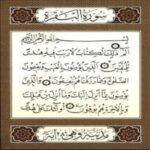 سورة البقرة
بسم الله الرحمن الرحيم
الم ذلك الكتب لا ريب فيه هدى
للمتقين الذين يؤمنون بالغيب ويقيمون
الصلوة ومما رزقنهم ينفقون والذين
يؤمنون بما أنزل إليك وما أنزل من قبلك
وبالآخرة هم يوقنون أولئك على هدى
مدنية وهي آية